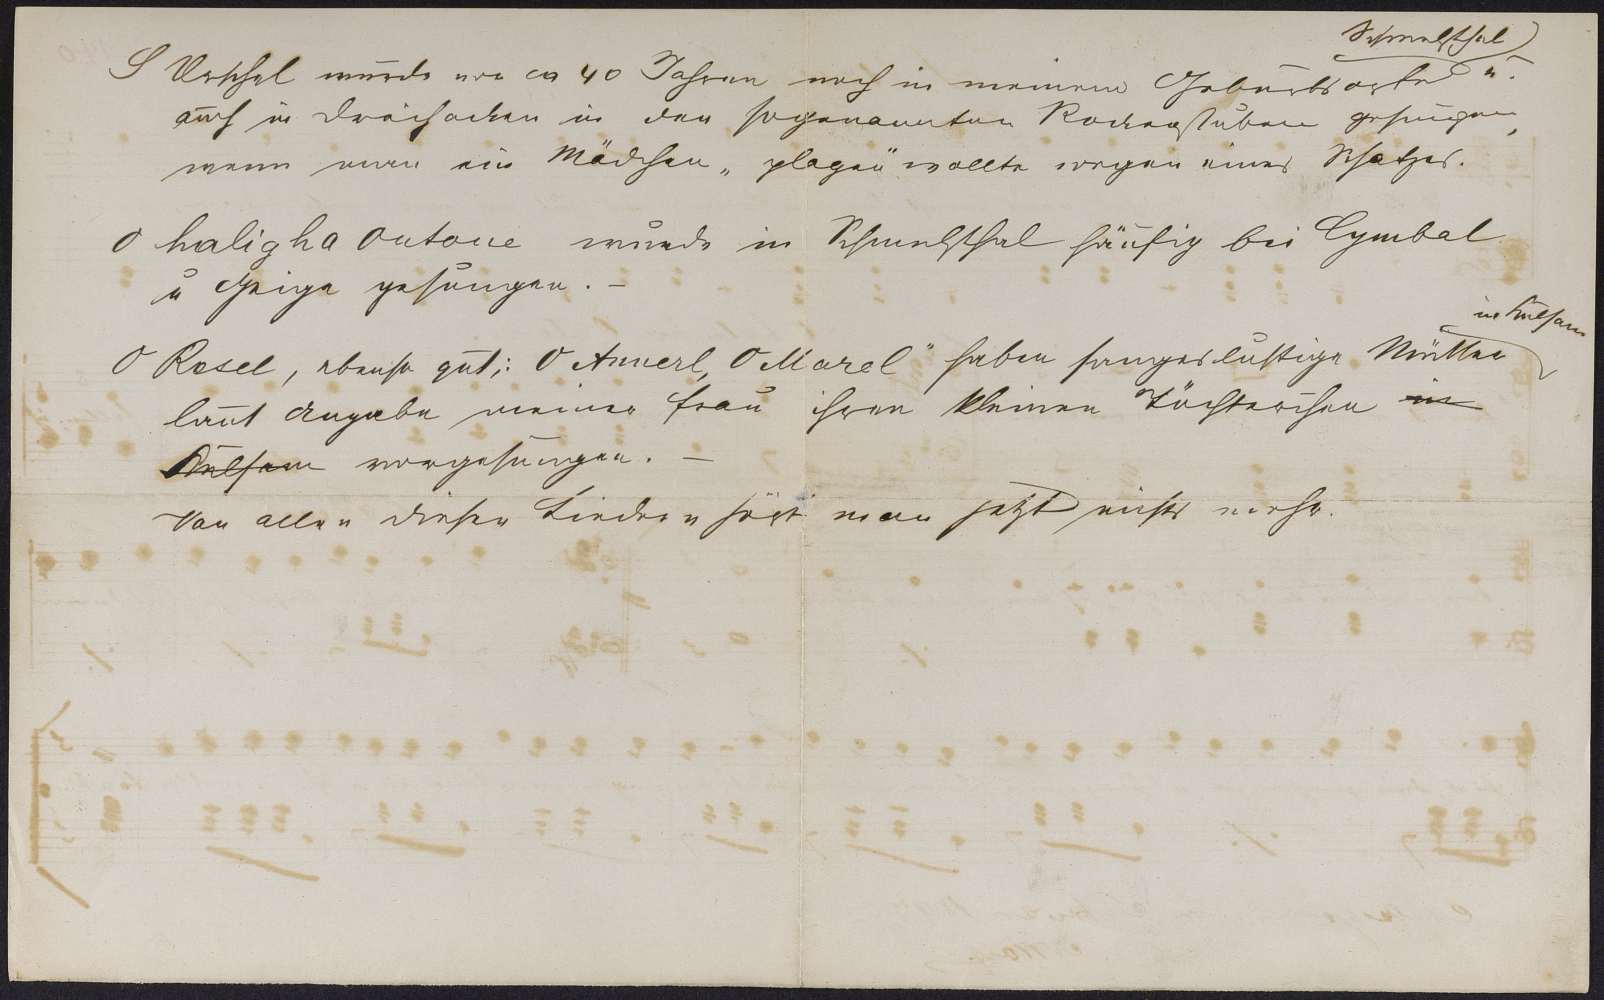 Schmelzthal
S Urschel wurde vor ca 40 Jahren noch in meinem Geburtsorte u.
auch in Dreihacken in den sogenannten Rockenstuben gesungen,
wenn man ein Mädchen „plagen“ wollte wegen eines Schatzes.
O haligha Ontone wurde in Schmelzthal häufig bei Cymbal
u Geige gesungen. –
in Kulsam
O Rosel, ebenso gut: O Annerl, O Marel" haben sangeslustige Mütter
laut Angabe meiner Frau ihren kleinen Töchterchen in
Kulsam vorgesungen. –
Von allen diesen Liedern hört man jetzt nichts mehr.